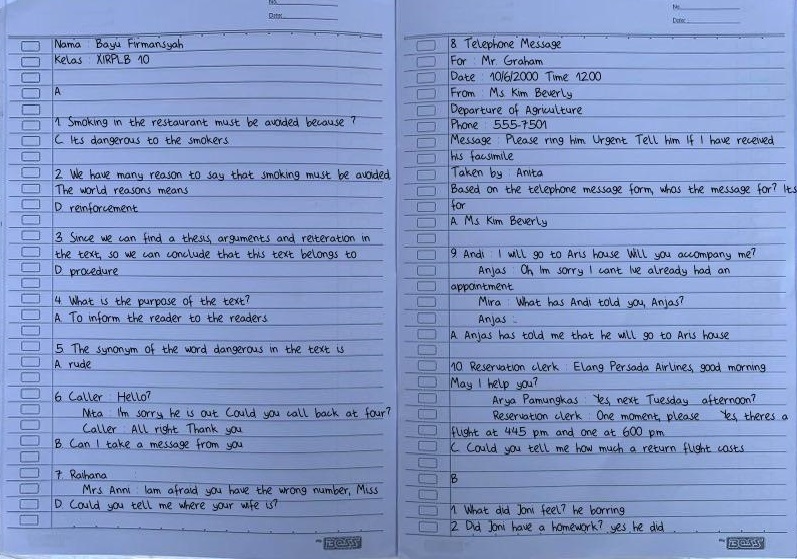 No.
Date:
Nama : Bayu Firmansyah
Kelas : XIRPLB 10
A
1 Smoking in the restaurant must be avoded because ?
C. Its dangerous to the smokers
2. We have many reason to say that smoking must be avoided
The world reasons means
D. reinforcement
3 Since we can find a thesis, arguments and reiteration in
the text, so we can conclude that this text belongs to
D. procedure
4. What is the purpose of the text?
A. To inform the reader to the readers
5 The synonym of the word dangerous in the text is
A rude
6 Caller : Hello?
Nita : I'm sorry he is out Could you call back at four?
Caller : All right Thank you
B. Can I take a message from you
7. Raihana :
Mrs Anni : Iam afraid you have the wrong number, Miss
D. Could you tell me where your wife is?
BOSS
No.
Date:
8 Telephone Message
For : Mr. Graham
Date : 10/6/2000 Time 1200
From : Ms. Kim Beverly
Departure of Agriculture
Phone : 555-7501
Message : Please ring him Urgent Tell him If I have received
his facsimile
Taken by : Anita
Based on the telephone message form, whos the message for? Its
for
A. Ms Kim Beverly
9. Andi : I will go to Aris house Will you accompany me?
Anjas : Oh Im sorry I cant Ive already had an
appointment
Mira : What has Andi told you, Anjas?
Anjas :
A Anjas has told me that he will go to Aris house
10 Reservation clerk : Elang Persada Airlines, good morning
May I help you?
Arya Pamungkas : Yes, next Tuesday afternoon?
Reservation clerk : One moment, please Yes, theres a
flight at 445 pm and one at 600 pm
C Could you tell me how much a return flight costs
B
1 What did Joni feel? he borring
2 Did Joni have a homework? yes he did
BOSS